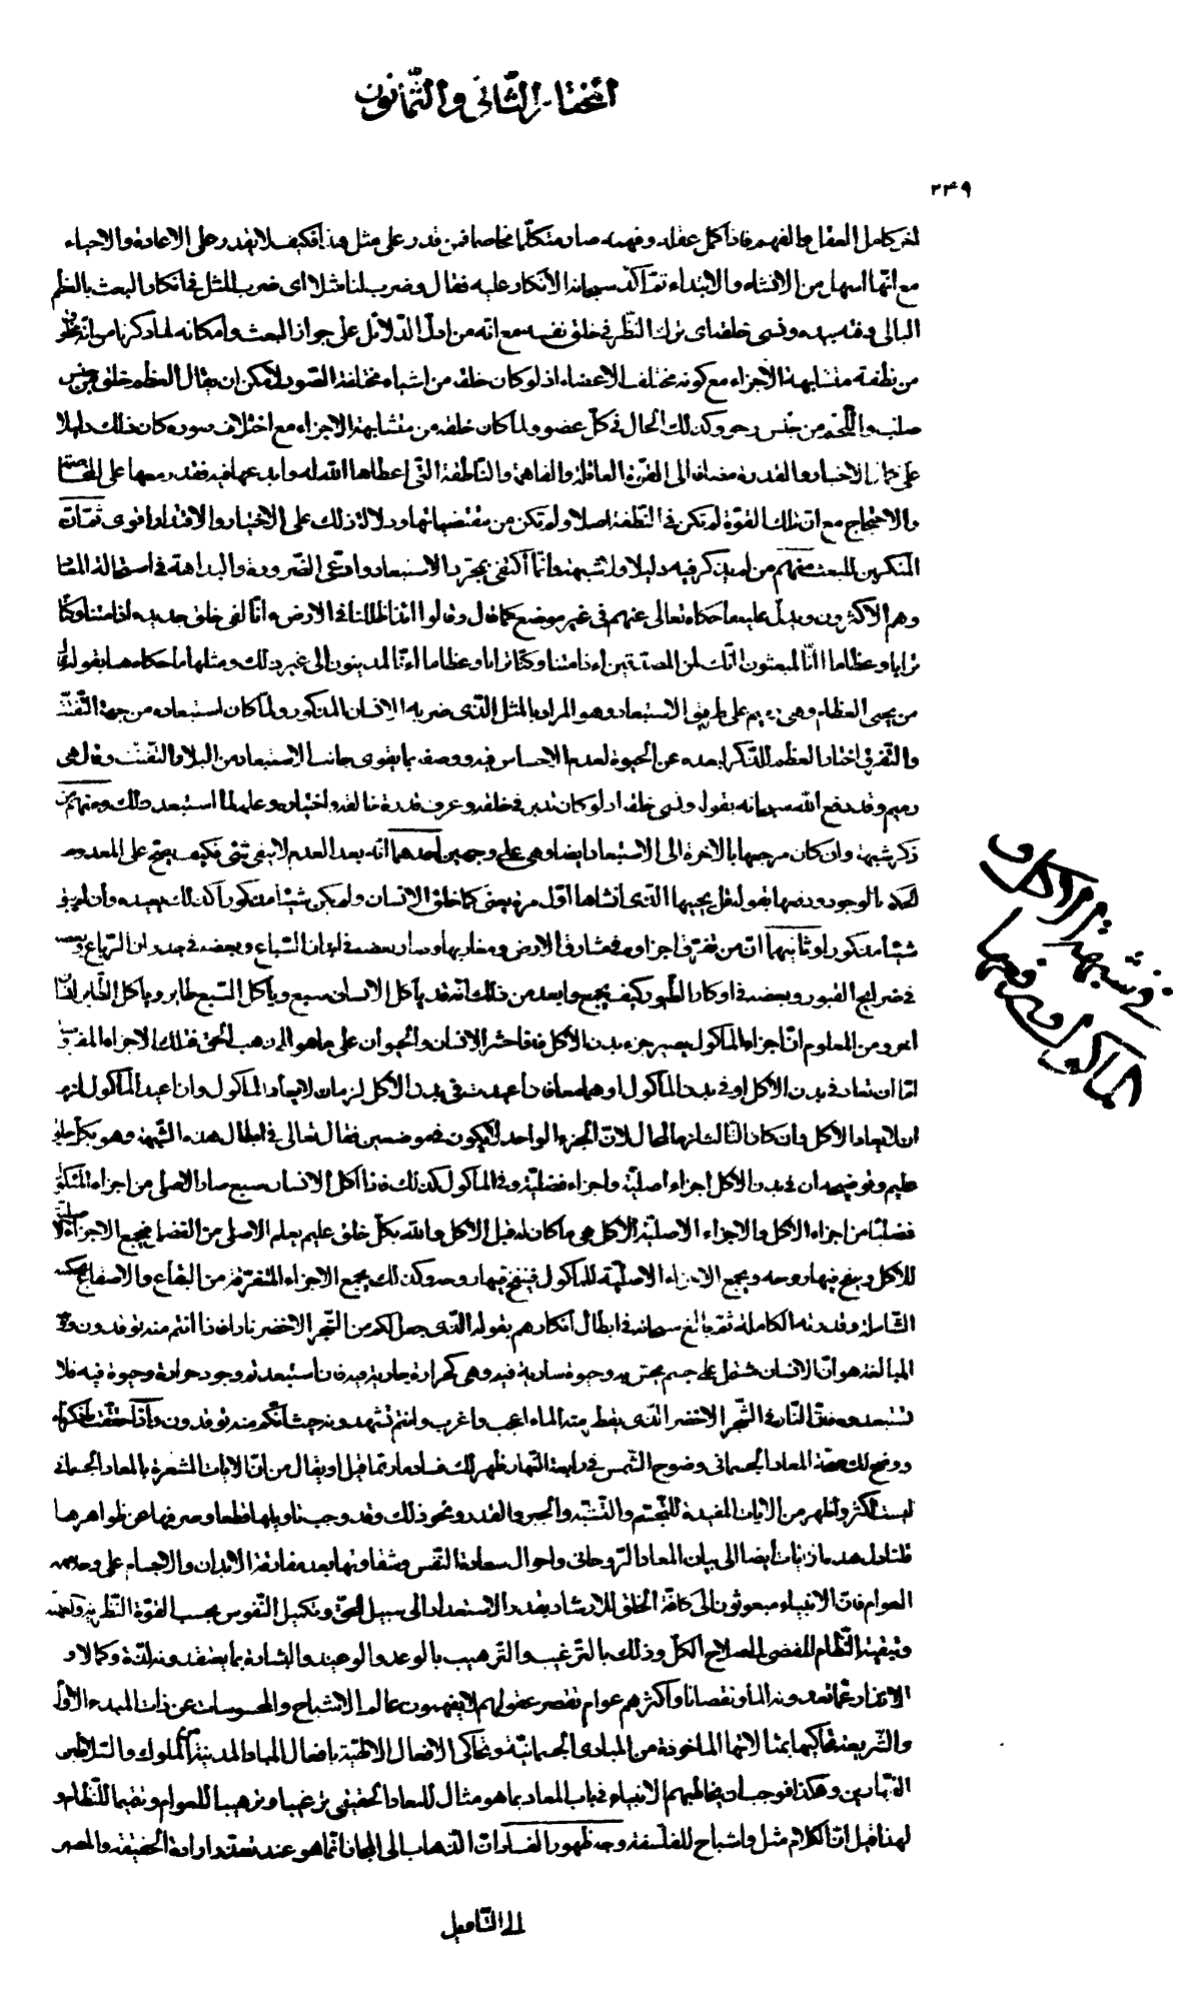 المختار الثاني والثمانون
٢٤٩
اخر كامل العقل والفهم فاذا كمل عقله وفهمه صار متكلّما مخاصما فمن قدر على مثل هذا فكيف لا يقدر على الاعادة والاحياء
مع انّها اسهل من الانشاء والابتداء ثمّ اكّد سبحانه الانكار عليه فقال وضرب لنا مثلا اى ضرب المثل في انكار البعث بالعظم
البالى وفته بيده ونسى خلقه اى ترك النّظر في خلق نفسه مع انّه من ادلّ الدّلائل على جواز البعث وامكانه لما ذكرنا من انّه خلق
من نطفة متشابهة الاجزاء مع كونه مختلف الاعضاء اذ لو كان خلقه من اشياء مختلفة الصّور لأمكن ان يقال العظم خلق من جنس
صلب واللّحم من جنس رخو وكذلك الحال في كلّ عضو ولما كان خلقه من متشابهة الاجزاء مع اختلاف صوره كان ذلك دليلا
على الاختيار والقدرة مضافا الى القوّة العاقلة والفاهمة والنّاطقة التّى اعطاها اللّه له وابدعها فيه فقدر معها على
والاحتجاج مع انّ تلك القوّة لم تكن في النّطفة اصلا ولم تكن من مقتضياتها ودلالة ذلك على الاختيار والاقتدار اقوى ثمّ انّ
المنكرين للبعث منهم من لم يذكر فيه دليلا ولا شبهة وانّما اكتفى بمجرّد الاستبعاد وادّعى الضّرورة والبداهة في استحالة
وهم الاكثرون ويدلّ عليه ما حكاه تعالى عنهم في غير موضع كما قال وقالوا ائذا ظللنا في الارض ءانّا لفى خلق جديد ءاذا متنا وكنّا
ترابا وعظاما ائنّا لمبعثون ائنّك لمن المصدّقين ءاذا متنا وكنّا ترابا وعظاما ءانّا لمدينون الى غير ذلك ومثلها ما حكاه هنا بقوله قال
من يحيى العظام وهى رميم على طريق الاستبعاد وهو المراد بالمثل الّذى ضربه الانسان المذكور ولمّا كان استبعاده من جهة التّفتّت
والتّفرّق اختار العظم للذّكر لبعده عن الحيوة لعدم الاحساس فيه ووصفه بما يقوى جانب الاستبعاد من البلا والتّفتّت وقال هى
رميم وقد دفع اللّه سبحانه بقوله ونسى خلقه اذ لو كان تدبر في خلقه وعرف قدرة خالقه واختياره وعلمه لما استبعد ذلك ومنهم من
ذكر شبهة وان كان مرجعها بالاخرة الى الاستبعاد ايضا وهى على وجهين احدهما انّه بعد العدم لا يبقى شئ فكيف يصحّ على المعدوم
الحكم بالوجود ودفعها بقوله قل يحييها الّذى انشاها اوّل مرة يعنى كما خلق الانسان ولم يكن شيئا مذكورا كذلك يعيده وان لم يبق
شيئا مذكورا وثانيهما انّ من تفرّق اجزاؤه في مشارق الارض ومغاربها وصار بعضه في ابدان السّباع وبعضه في جدران الرّباع وبعضه
في ضرايح القبور وبعضه في اوكار الطّيور كيف يجمع وابعد من ذلك انّه قد ياكل الانسان سبع وياكل السّبع طاير وياكل الطّاير انسان
اخر ومن المعلوم انّ اجزاء الماكول يصير جزء بدن الآكل فاذا حشر الانسان والحيوان على ما هو المذهب الحقّ فتلك الاجزاء المفروضة
امّا ان تعاد في بدن الآكل او في بدن الماكول او هما معا فان اعيدت في بدن الآكل لزم ان لا يعاد الماكول وان اعيد الماكول لزم
ان لا يعاد الآكل وان كان الثالث لزم المحال لانّ الجزء الواحد لا يكون في موضعين فقال تعالى في ابطال هذه الشّبهة وهو بكلّ خلق
عليم وتوضيحه ان في بدن الآكل اجزاء اصليّة واجزاء فضليّة وفي الماكول كذلك فاذا اكل الانسان سبع صار الاصلى من اجزاء الماكول
فضليّا من اجزاء الآكل والاجزاء الاصليّة للآكل هى ما كان له قبل الاكل واللّه بكلّ خلق عليم يعلم الاصلى من الفضلى فيجمع الاجزاء الاصليّة
للآكل وينفخ فيها روحه ويجمع الاجزاء الاصليّة للماكول فينفخ فيها روحه وكذلك يجمع الاجزاء المتفرّقة من البقاع والاصقاع بحكمته
الشّاملة وقدرته الكاملة ثمّ بالغ سبحانه في ابطال انكارهم بقوله الّذى جعل لكم من الشّجر الاخضر نارا فاذا انتم منه توقدون ووجه
المبالغة هو انّ الانسان مشتمل على جسم يحسّ به وحيوة سارية فيه وهى كحرارة جارية فيه فان استبعدتم وجود حرارة وحيوة فيه فلا
تستبعدوه فانّ النّار في الشّجر الاخضر الّذى يقطر منه الماء اعجب واغرب وانتم تشهدونه حيث انّكم منه توقدون واذا حقّقت ما ذكرناه
ووضح لك صحّة المعاد الجسمانى وضوح الشّمس في رابعة النّهار ظهر لك فساد ما ربّما قيل او يقال من انّ الايات المشعرة بالمعاد الجسمانى
ليست اكثر واظهر من الايات المفيدة للتّجسّم والتّشبّه والجبر والقدر ونحو ذلك وقد وجب تاويلها قطعا وصرفها عن ظواهرها
فلتاول هذه الايات ايضا الى بيان المعاد الرّوحانى واحوال سعادة النّفس وشقاوتها بعد مفارقة الابدان والاجسام على وجه يفهمه
العوام فانّ الانبياء مبعوثون الى كافّة الخلق للارشاد بقدر الاستعداد الى سبيل الحقّ وتكميل النّفوس بحسب القوّة النّظريّة والعمليّة
وتبقية النّظام المفضى الى صلاح الكلّ وذلك بالتّرغيب والتّرهيب بالوعد والوعيد والبشارة بما يعتقدونه لذّة وكمالا و
الانذار عمّا يعدونه الما ونقصانا واكثرهم عوام تقصر عقولهم لا يفهمون عالم الاشباح والمحسوسات عن ذات المبدء الاوّل
والشّريعة تحاكيها بمثالاتها الماخوذة من المبادى الجسمانيّة وتحاكى الافعال الالهيّة بافعال المبادى المدنيّة من الملوك والسّلاطين
القهّارين وهكذا فوجب ان يخاطبهم الانبياء في باب المعاد بما هو مثال للمعاد الحقيقى ترغيبا وترهيبا للعوام وتتميما للنّظام و
لهذا قيل انّ الكلام مثل واشباح للفلسفة وجه ظهور الفساد انّ الذّهاب الى المجاز انّما هو عند تعذّر ارادة الحقيقة والمصير
الى التّاويل
في شبهة الآكل و
المأكول ودفعها